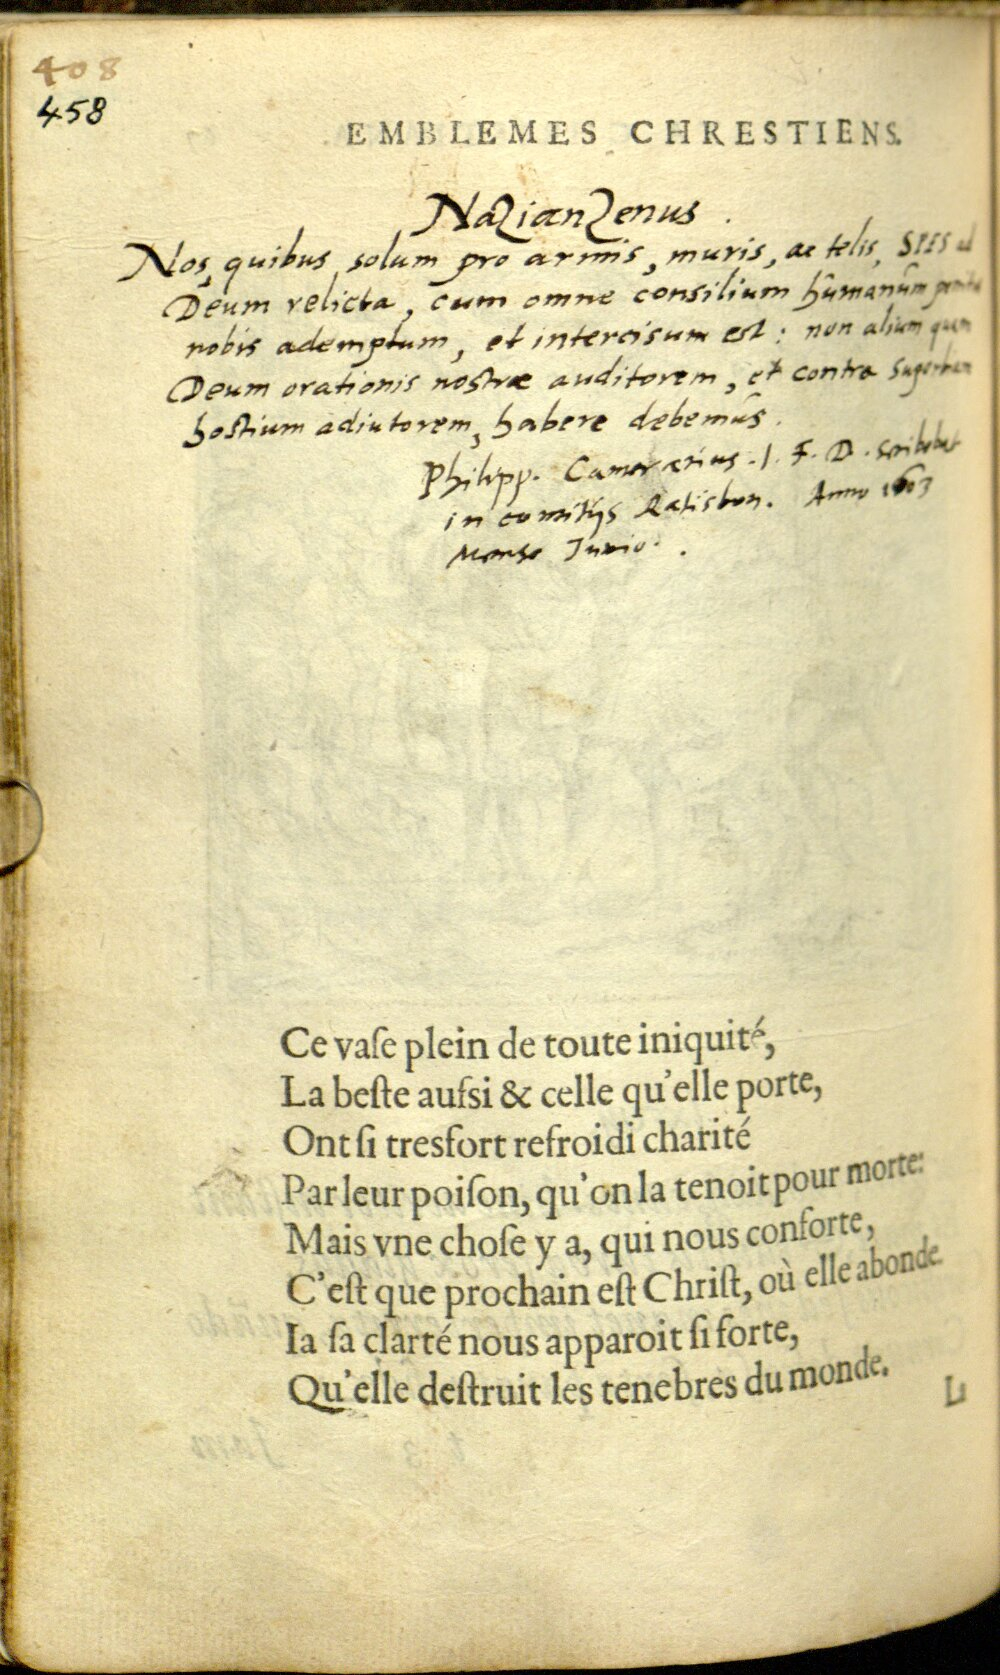 408
458
EMBLEMES CHRESTIENS.
NaZianZenus.
Nos, quibus solum pro armis, muris, ac telis, SPES ad
Deum relicta, cum omne consilium humanum
nobis ademptum, et intercisum est: non alium quam
Deum orationis nostræ auditorem, et contra superbam
hostium adiutorem, habere debemus.
Philipp. Camerarius. I. F. D. scribebat
in comitijs Ratisbon. Anno 1603
Mense Junio.
Ce vaſe plein de toute iniquité,
La beſte auſsi & celle qu'elle porte,
Ont ſi tresfort refroidi charité
Par leur poiſon, qu'on la tenoit pour morte:
Mais vne choſe y a, qui nous conforte,
C'eſt que prochain eſt Chriſt, où elle abonde.
Ia ſa clarté nous apparoit ſi forte,
Qu'elle deſtruit les tenebres du monde.